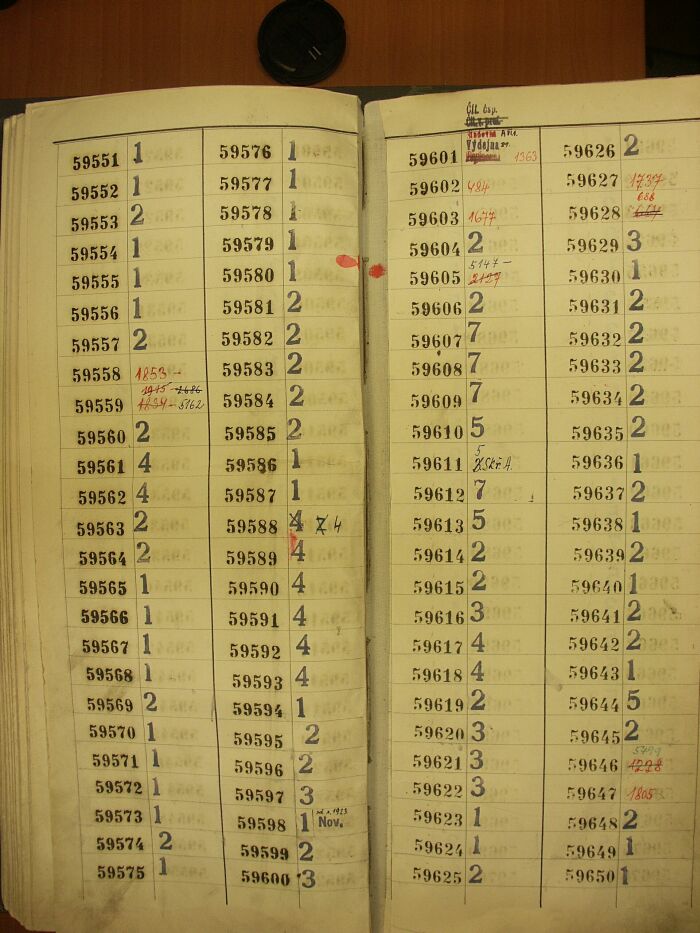 59551 1
59552 1
59553 2
59554 1
59555 1
59556 1
59557 2
59558 1853 -
1915 - 2686
59559 1834 - 5162
59560 2
59561 4
59562 4
59563 2
59564 2
59565 1
59566 1
59567 1
59568 1
59569 2
59570 1
59571 1
59572 1
59573 1
59574 2
59575 1
59576 1
59577 1
59578 1
59579 1
59580 1
59581 2
59582 2
59583 2
59584 2
59585 2
59586 1
59587 1
59588 4 Z 4
59589 4
59590 4
59591 4
59592 4
59593 4
59594 1
59595 2
59596 2
59597 3
1923
59598 1 Nov.
59599 2
59600 3
Čít. čsp.
Výdejna
59601 1363
59602 484
59603 1677
59604 2
5147 -
59605 2127
59606 2
59607 7
59608 7
59609 7
59610 5
5
59611
59612 7
59613 5
59614 2
59615 2
59616 3
59617 4
59618 4
59619 2
59620 3
59621 3
59622 3
59623 1
59624 1
59625 2
59626 2
59627 1737
686
59628
59629 3
59630 1
59631 2
59632 2
59633 2
59634 2
59635 2
59636 1
59637 2
59638 1
59639 2
59640 1
59641 2
59642 2
59643 1
59644 5
59645 2
59646 1228
59647 1805
59648 2
59649 1
59650 1